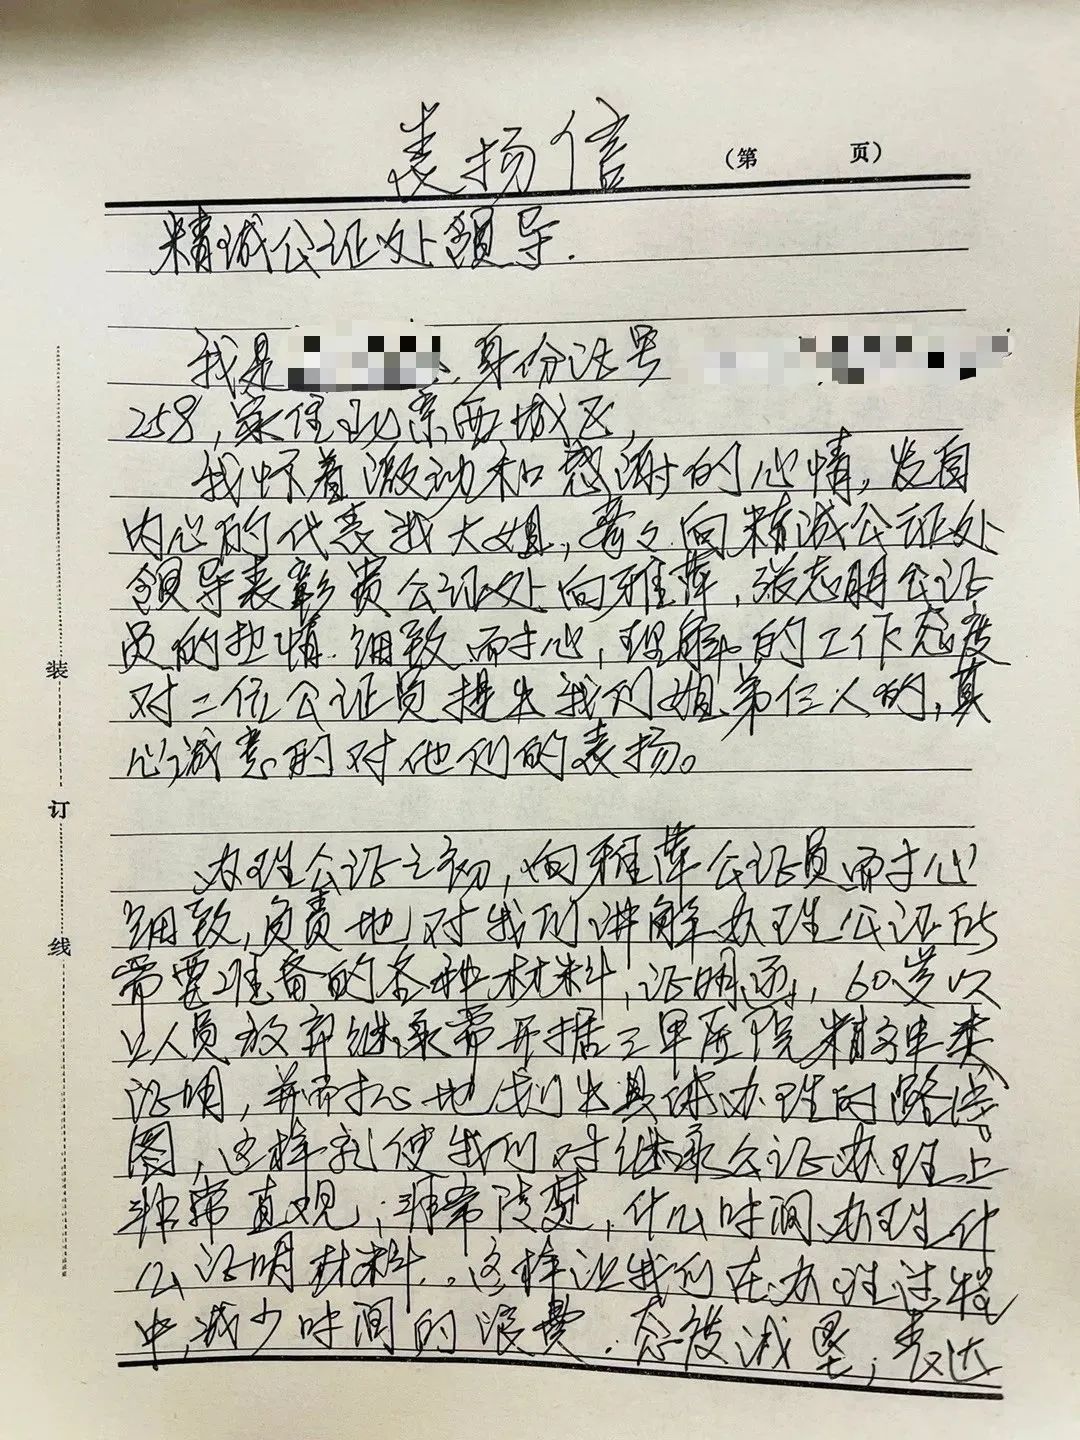 表扬信
(第 页)
精诚公证处领导.
我是 身份证号
258,家住北京西城区,
我怀着激动和感谢的心情,发自
内心的代表我大姐, 向精诚公证处
领导表彰贵公证处向雅萍,张志朋公证
员的热情.细致,耐心,理解的工作态度
对二位公证员提出我们姐弟仨人的,真
心诚意的对他们的表扬。
办理公证之初,向雅萍公证员耐心
细致,负责地对我们讲解办理公证所
需要准备的各种材料,证明,60岁以
上人员放弃继承需开据三甲医院精神类
证明,并耐心地划出具体办理的路径
图,这样就使我们对继承公证办理上
非常直观,非常清楚,什么时间办理什
么证明材料。这样让我们在办理过程
中,减少时间的浪费.态度诚恳,表达
装
订
线